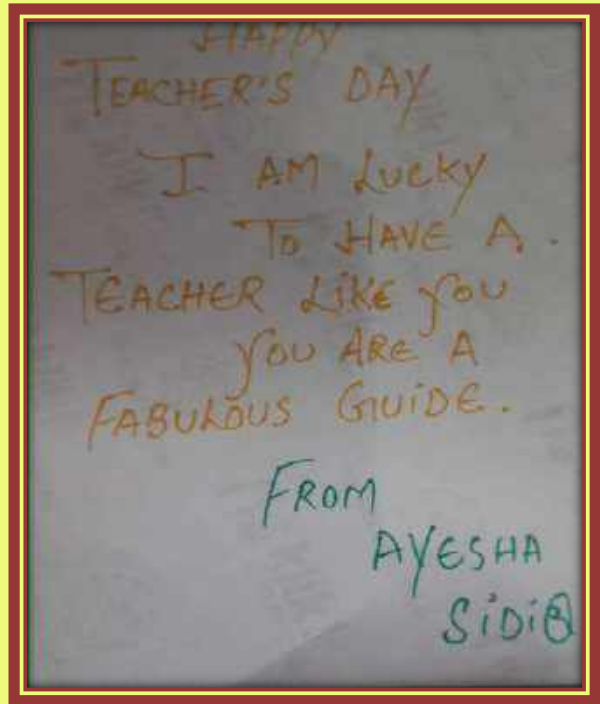 HAPPY
TEACHER'S DAY
I AM LUCKY
TO HAVE A.
TEACHER LIKE YOU
YOU ARE A
FABULOUS GUIDE.
FROM
AYESHA
SIDIQ